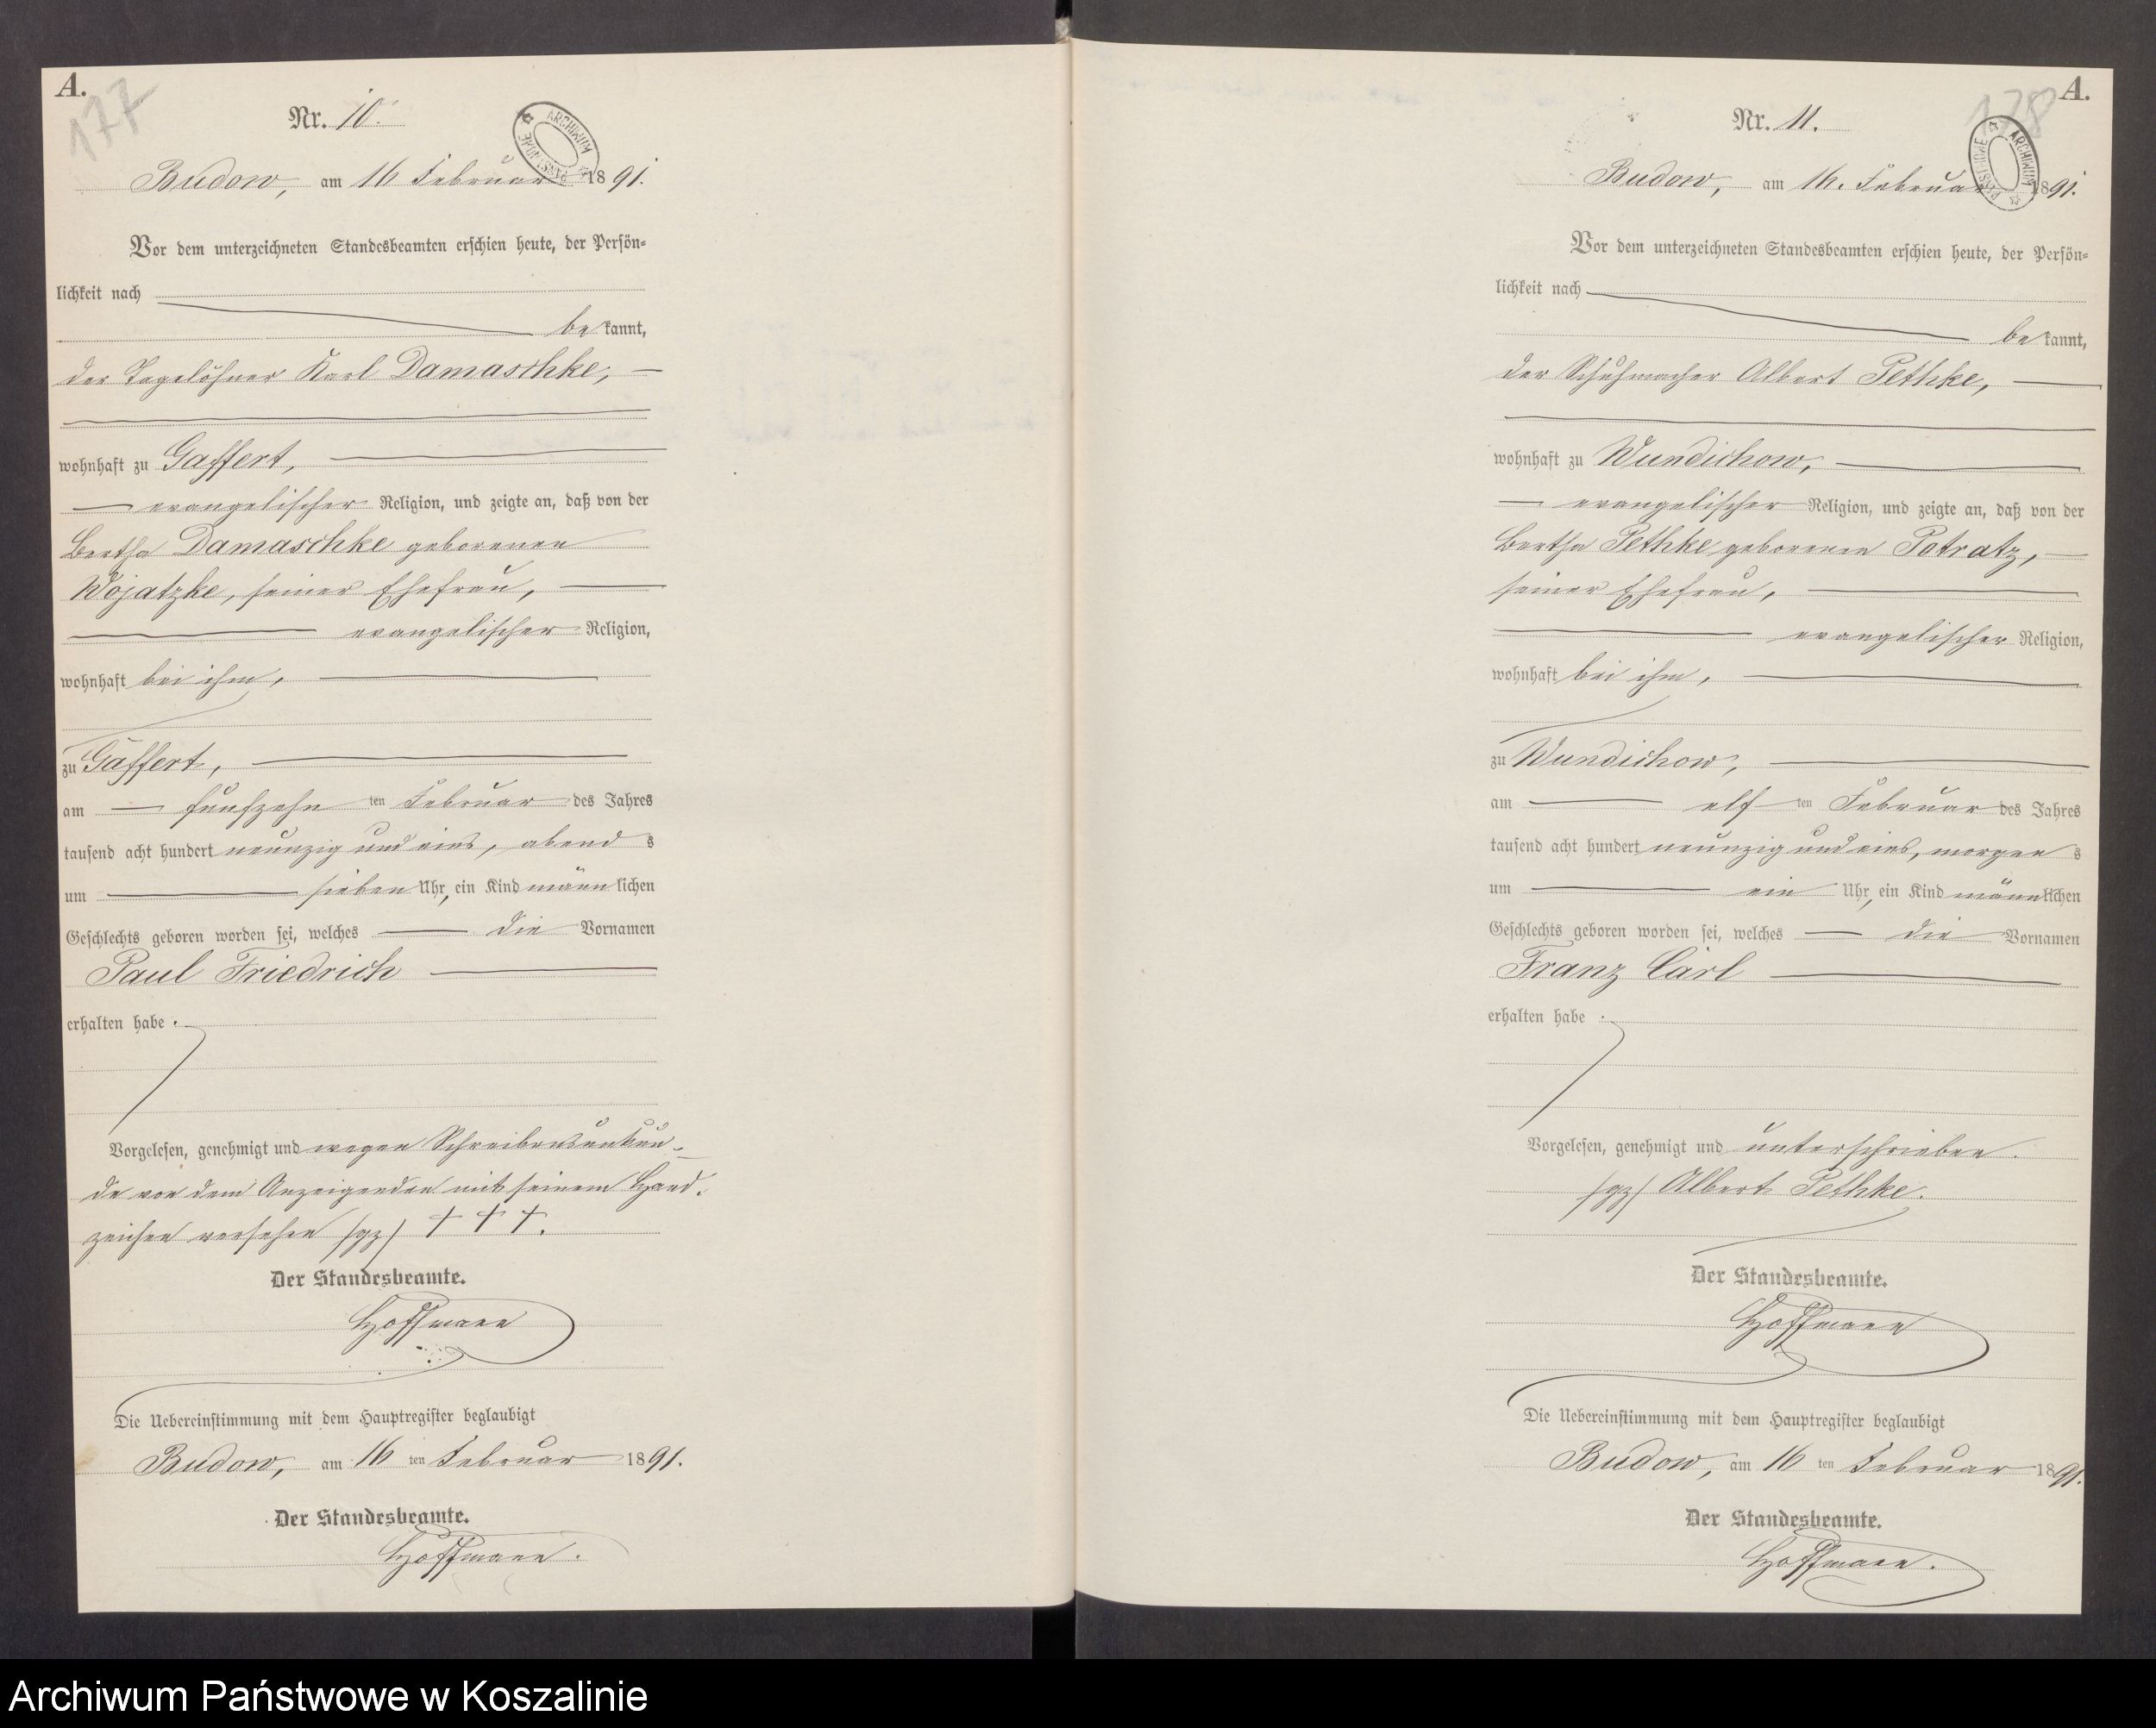 A.
177
Nr. 10.
ARCHIWUM PAŃSTWOWE
Budow, am 16 Februar 1891.
Vor dem unterzeichneten Standesbeamten erschien heute, der Persön-
lichkeit nach
be kannt,
der Tagelöhner Karl Damaschke,
wohnhaft zu Gaffert,
evangelischer Religion, und zeigte an, daß von der
Bertha Damaschke geborenen
Wojatzke, seiner Ehefrau,
evangelischer Religion,
wohnhaft bei ihm,
zu Gaffert,
am fünfzehn ten Februar des Jahres
tausend acht hundert neunzig und eins, abend s
um sieben Uhr, ein Kind männ lichen
Geschlechts geboren worden sei, welches die Vornamen
Paul Friedrich
erhalten habe.
Vorgelesen, genehmigt und wegen Schreibensunkun-
de von dem Anzeigenden mit seinem Hand-
zeichen versehen /gz/ + + +.
Der Standesbeamte.
Hoffmann
Die Uebereinstimmung mit dem Hauptregister beglaubigt
Budow, am 16 ten Februar 1891.
Der Standesbeamte.
Hoffmann.
A.
178
Nr. 11.
ARCHIWUM PAŃSTWOWE
Budow, am 16. Februar 1891.
Vor dem unterzeichneten Standesbeamten erschien heute, der Persön-
lichkeit nach
be kannt,
der Schuhmacher Albert Pethke,
wohnhaft zu Wundichow,
evangelischer Religion, und zeigte an, daß von der
Bertha Pethke geborenen Potratz,
seiner Ehefrau,
evangelischer Religion,
wohnhaft bei ihm,
zu Wundichow,
am elf ten Februar des Jahres
tausend acht hundert neunzig und eins, morgen s
um ein Uhr, ein Kind männlichen
Geschlechts geboren worden sei, welches die Vornamen
Franz Carl
erhalten habe.
Vorgelesen, genehmigt und unterschrieben.
/gz/ Albert Pethke.
Der Standesbeamte.
Hoffmann
Die Uebereinstimmung mit dem Hauptregister beglaubigt
Budow, am 16 ten Februar 1891.
Der Standesbeamte.
Hoffmann.
Archiwum Państwowe w Koszalinie